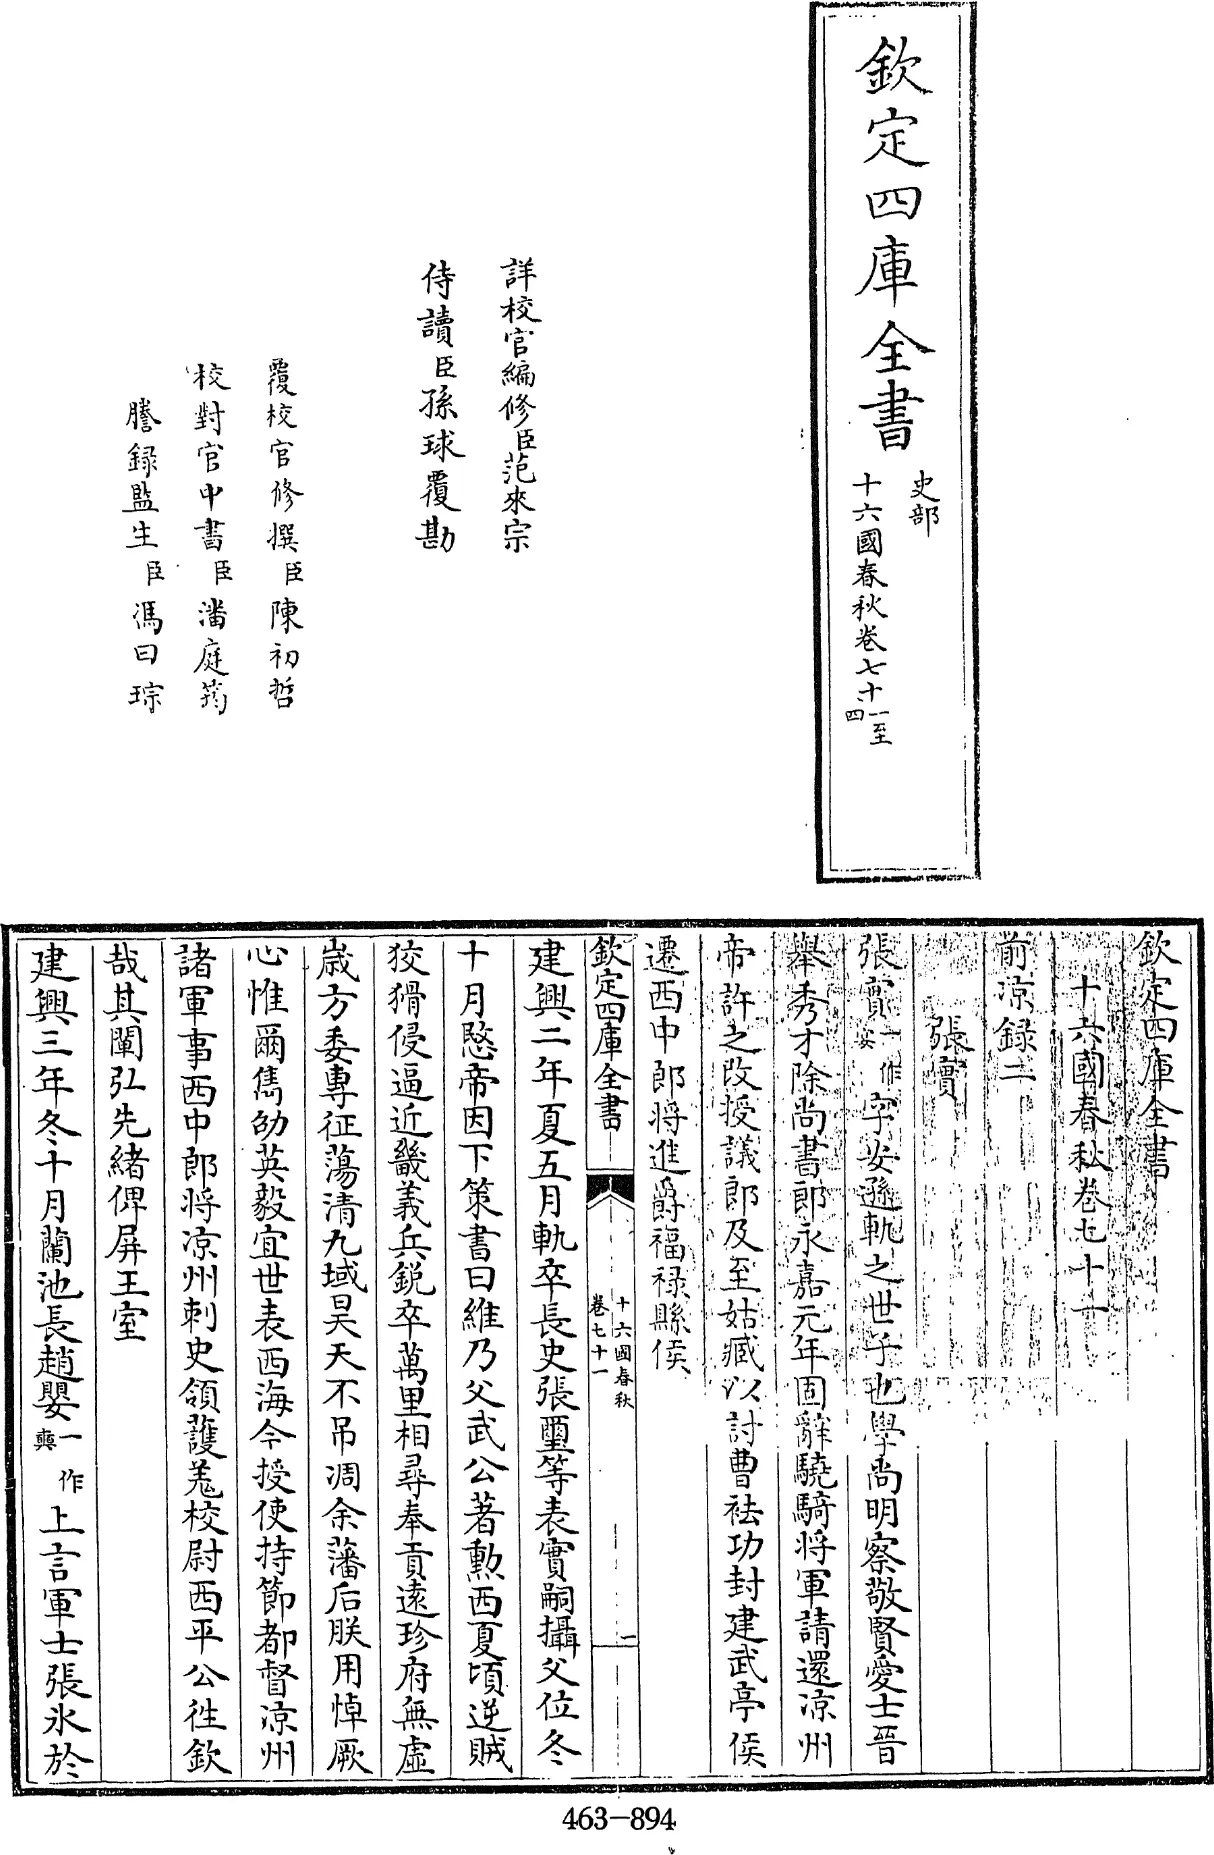 欽定四庫全書
史部
十六國春秋卷七十一至
四
詳校官編修臣范來宗
侍讀臣孫球覆勘
覆校官修撰臣陳初哲
校對官中書臣潘庭筠
謄録監生臣馮曰琮
欽定四庫全書
十六國春秋卷七十一
前凉録二
張寔
張寔一作安字安遜軌之世子也學尚明察敬賢愛士晉
舉秀才除尚書郎永嘉元年固辭驍騎將軍請還凉州
帝許之改授議郎及至姑臧以討曹袪功封建武亭侯
遷西中郎將進爵福禄縣侯
欽定四庫全書
十六國春秋
卷七十一
一
建興二年夏五月軌卒長史張璽等表寔嗣攝父位冬
十月愍帝因下策書曰維乃父武公著勲西夏頃逆賊
狡猾侵逼近畿義兵鋭卒萬里相尋奉貢遠珍府無虛
歳方委專征蕩清九域昊天不吊凋余藩后朕用悼厥
心惟爾雋劭英毅宜世表西海今授使持節都督凉州
諸軍事西中郎将凉州刺史領護羌校尉西平公徃欽
哉其闡弘先緒俾屏王室
建興三年冬十月蘭池長趙嬰一作奭上言軍士張氷於
463-894